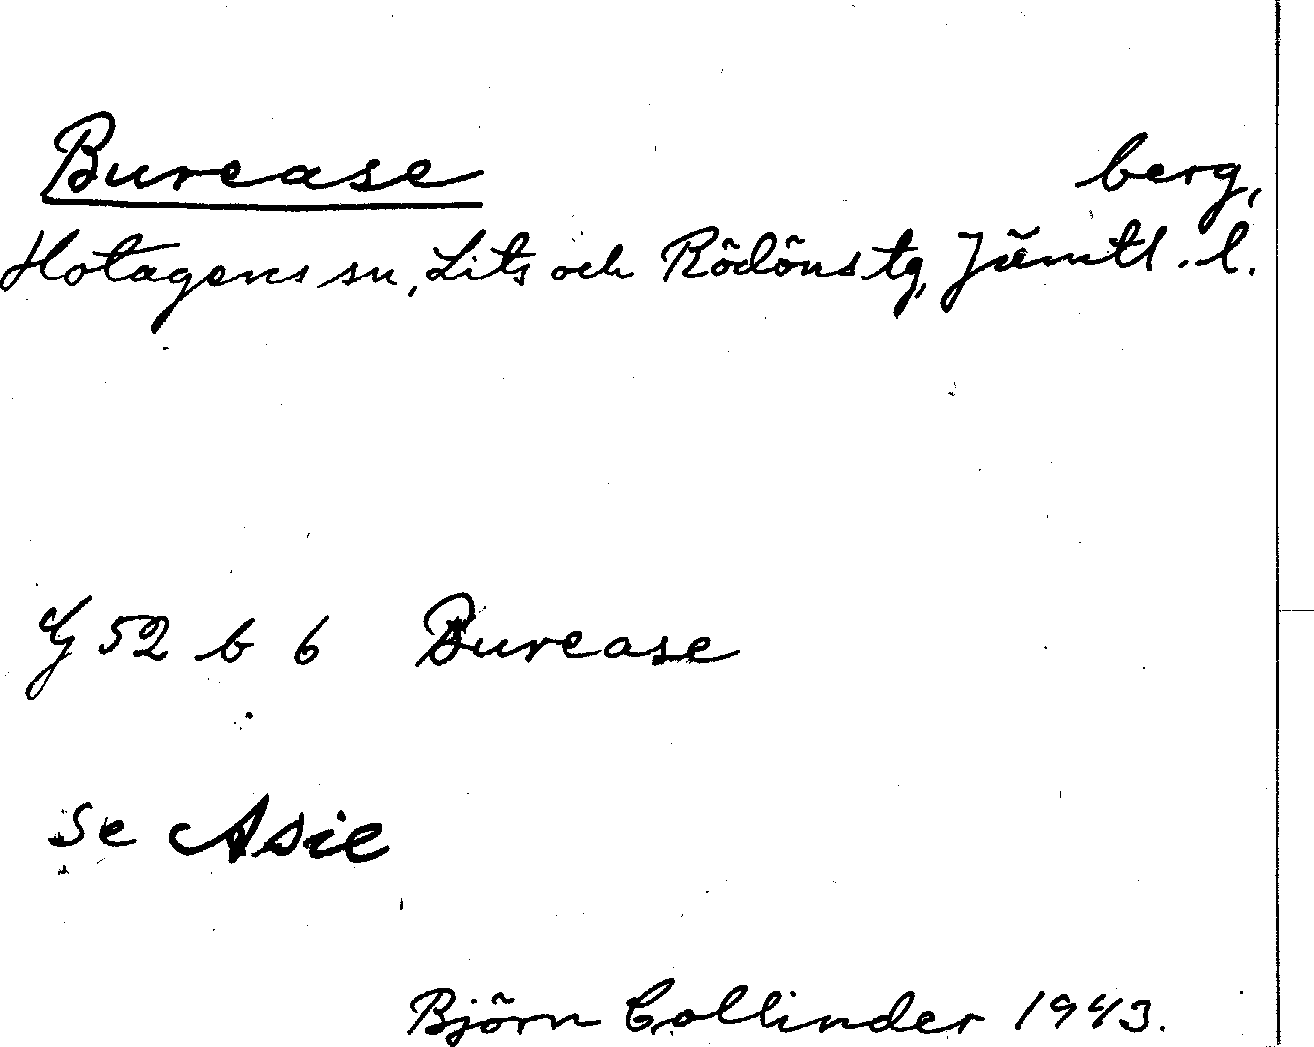 Burease berg,
Hotagens sn, Lits och Rödöns tg, Jämtl. l.
G 52 b 6 Burease
Se Asie
Björn Collinder 1943.